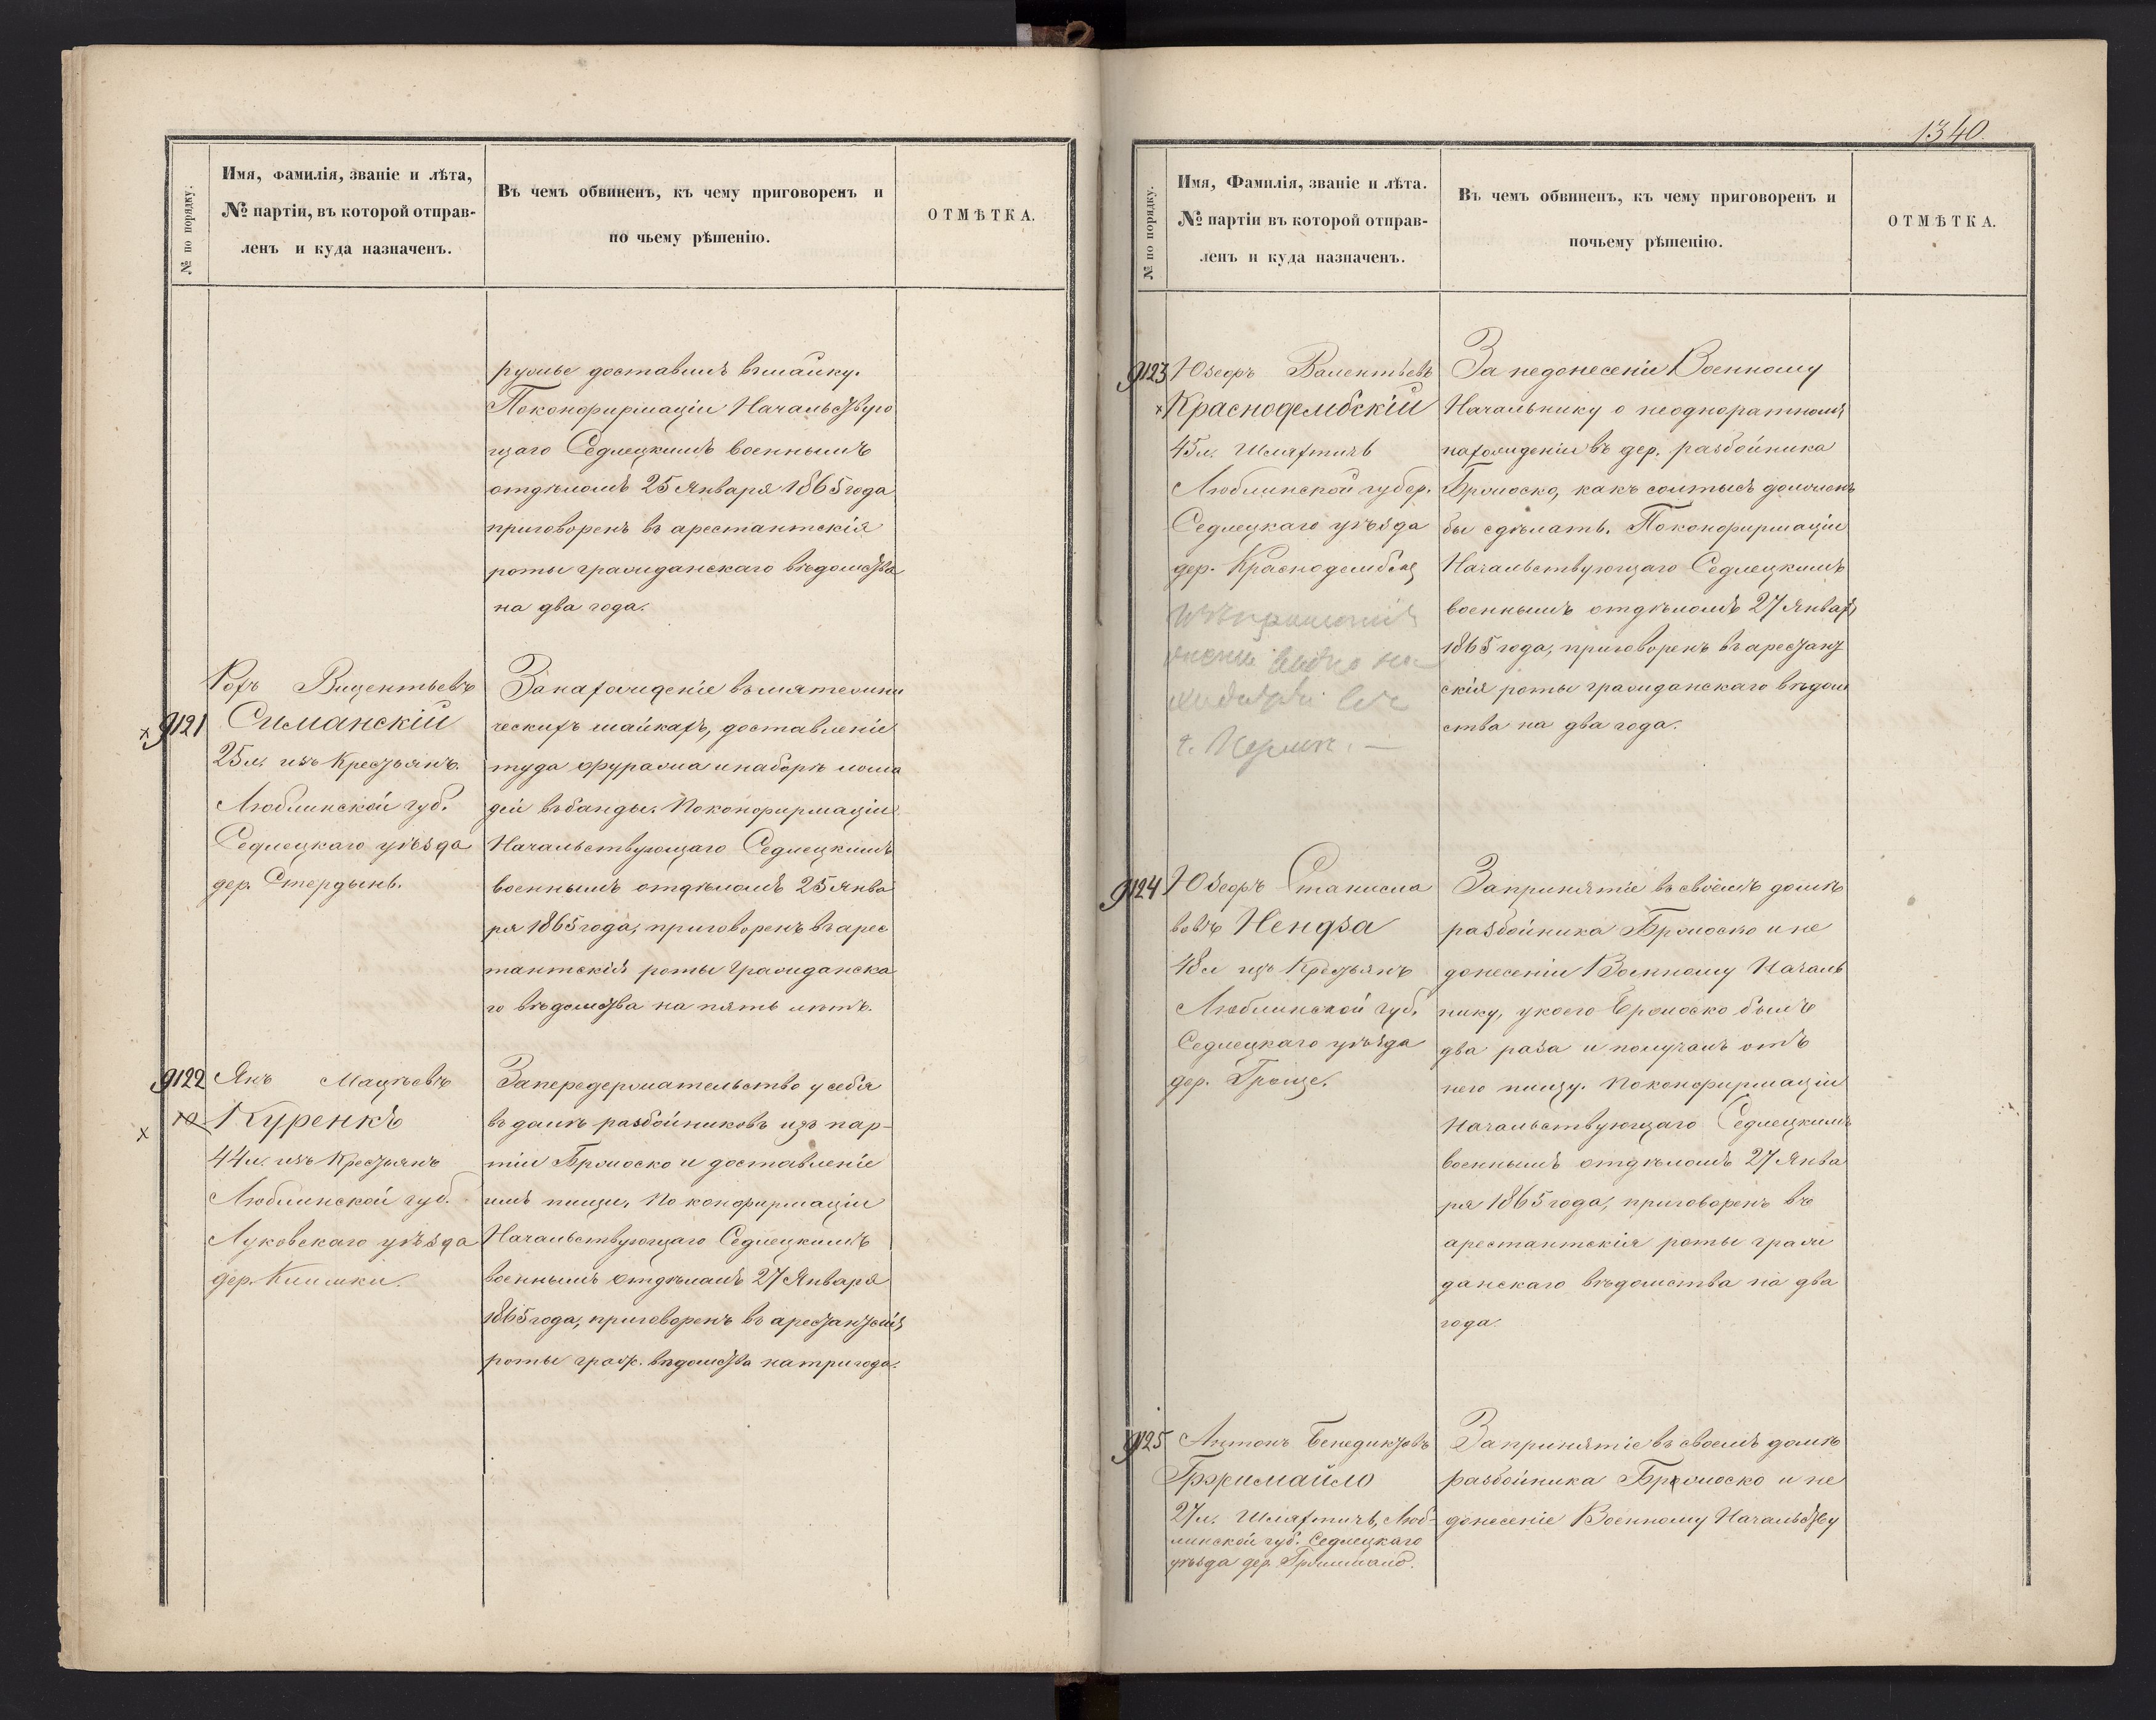 № по порядку.
Имя, Фамилія, званіе и лѣта,
№ партіи, въ которой отправ-
ленъ и куда назначенъ.
Въ чемъ обвиненъ, къ чему приговоренъ и
по чьему рѣшенію.
ОТМѢТКА.
ружье доставилъ въ шайку.
По конфирмаціи Начальствую
щаго Седлецкимъ военнымъ
отдѣломъ 25 Января 1865 года
приговоренъ въ арестантскія
роты гражданскаго вѣдомства
на два года.
9121
Рохъ Вицентьевъ
Симанскій
25 л. изъ Крестьянъ.
Люблинской губ.
Седлецкаго уѣзда
дер. Стердынь.
За нахожденіе въ мятежни
ческихъ шайкахъ, доставленіи
туда фуража и наборѣ лоша
дей въ банды. По конфирмаціи
Начальствующаго Седлецкимъ
военнымъ отдѣломъ 25 Янва
ря 1865 года, приговоренъ въ арес
тантскія роты Гражданска
го вѣдомства на пять лѣтъ.
9122
Янъ Мацѣевъ
Куренкъ
44 л. изъ Крестьянъ
Люблинской губ.
Луковскаго уѣзда
дер. Климки.
За передержательство у себя
въ домѣ разбойниковъ изъ пар-
тіи Бржоско и доставленіе
имъ пищи. По конфирмаціи
Начальствующаго Седлецкимъ
военнымъ отдѣломъ 27 Января
1865 года, приговоренъ въ арестантскія
роты граж. вѣдомства на три года.
1340.
№ по порядку.
Имя, Фамилія, званіе и лѣта.
№ партіи въ которой отправ-
ленъ и куда назначенъ.
Въ чемъ обвиненъ, къ чему приговоренъ и
почьему рѣшенію.
ОТМѢТКА.
9123
Юзефъ Валентьевъ
Краснодембскій
45 л. Шляхтичъ
Люблинской губер.
Седлецкаго уѣзда
дер. Краснодембы
За недонесеніе Военному
Начальнику о неоднократномъ
нахожденіи въ дер. разбойника
Бржоско, какъ солтысъ долженъ
бы сдѣлать. По конфирмаціи
Начальствующаго Седлецкимъ
военнымъ отдѣломъ 27 Января
1865 года, приговоренъ въ арестант
скія роты гражданскаго вѣдом
ства на два года.
9124
Юзефъ Станисла
вовъ Нендза
48 л изъ Крестьянъ
Люблинской губ.
Седлецкаго уѣзда
дер.
За принятіе въ своемъ домѣ
разбойника Бржоско и не
донесеніи Военному Началь
нику, у коего Бржоско былъ
два раза и получалъ отъ
него пищу. По конфирмаціи
Начальствующаго Седлецкимъ
военнымъ отдѣломъ 27 Янва
ря 1865 года, приговоренъ въ
арестантскія роты граж
данскаго вѣдомства на два
года.
9125
Антонъ Бенедиктовъ
Гржимайло
27 л. Шляхтичъ, Люб-
линской губ. Седлецкаго
уѣзда дер.
За принятіе въ своемъ домѣ
разбойника Бржоско и не
донесеніе Военному Начальству